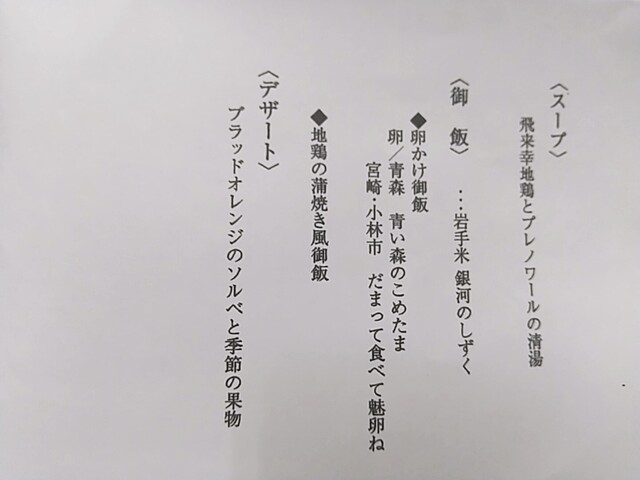 〈スープ〉
飛来幸地鶏とプレノワールの清湯
〈御　飯〉　…岩手米 銀河のしずく
◆卵かけ御飯
卵／青森　青い森のこめたま
宮崎・小林市　だまって食べて魅卵ね
◆地鶏の蒲焼き風御飯
〈デザート〉
ブラッドオレンジのソルベと季節の果物